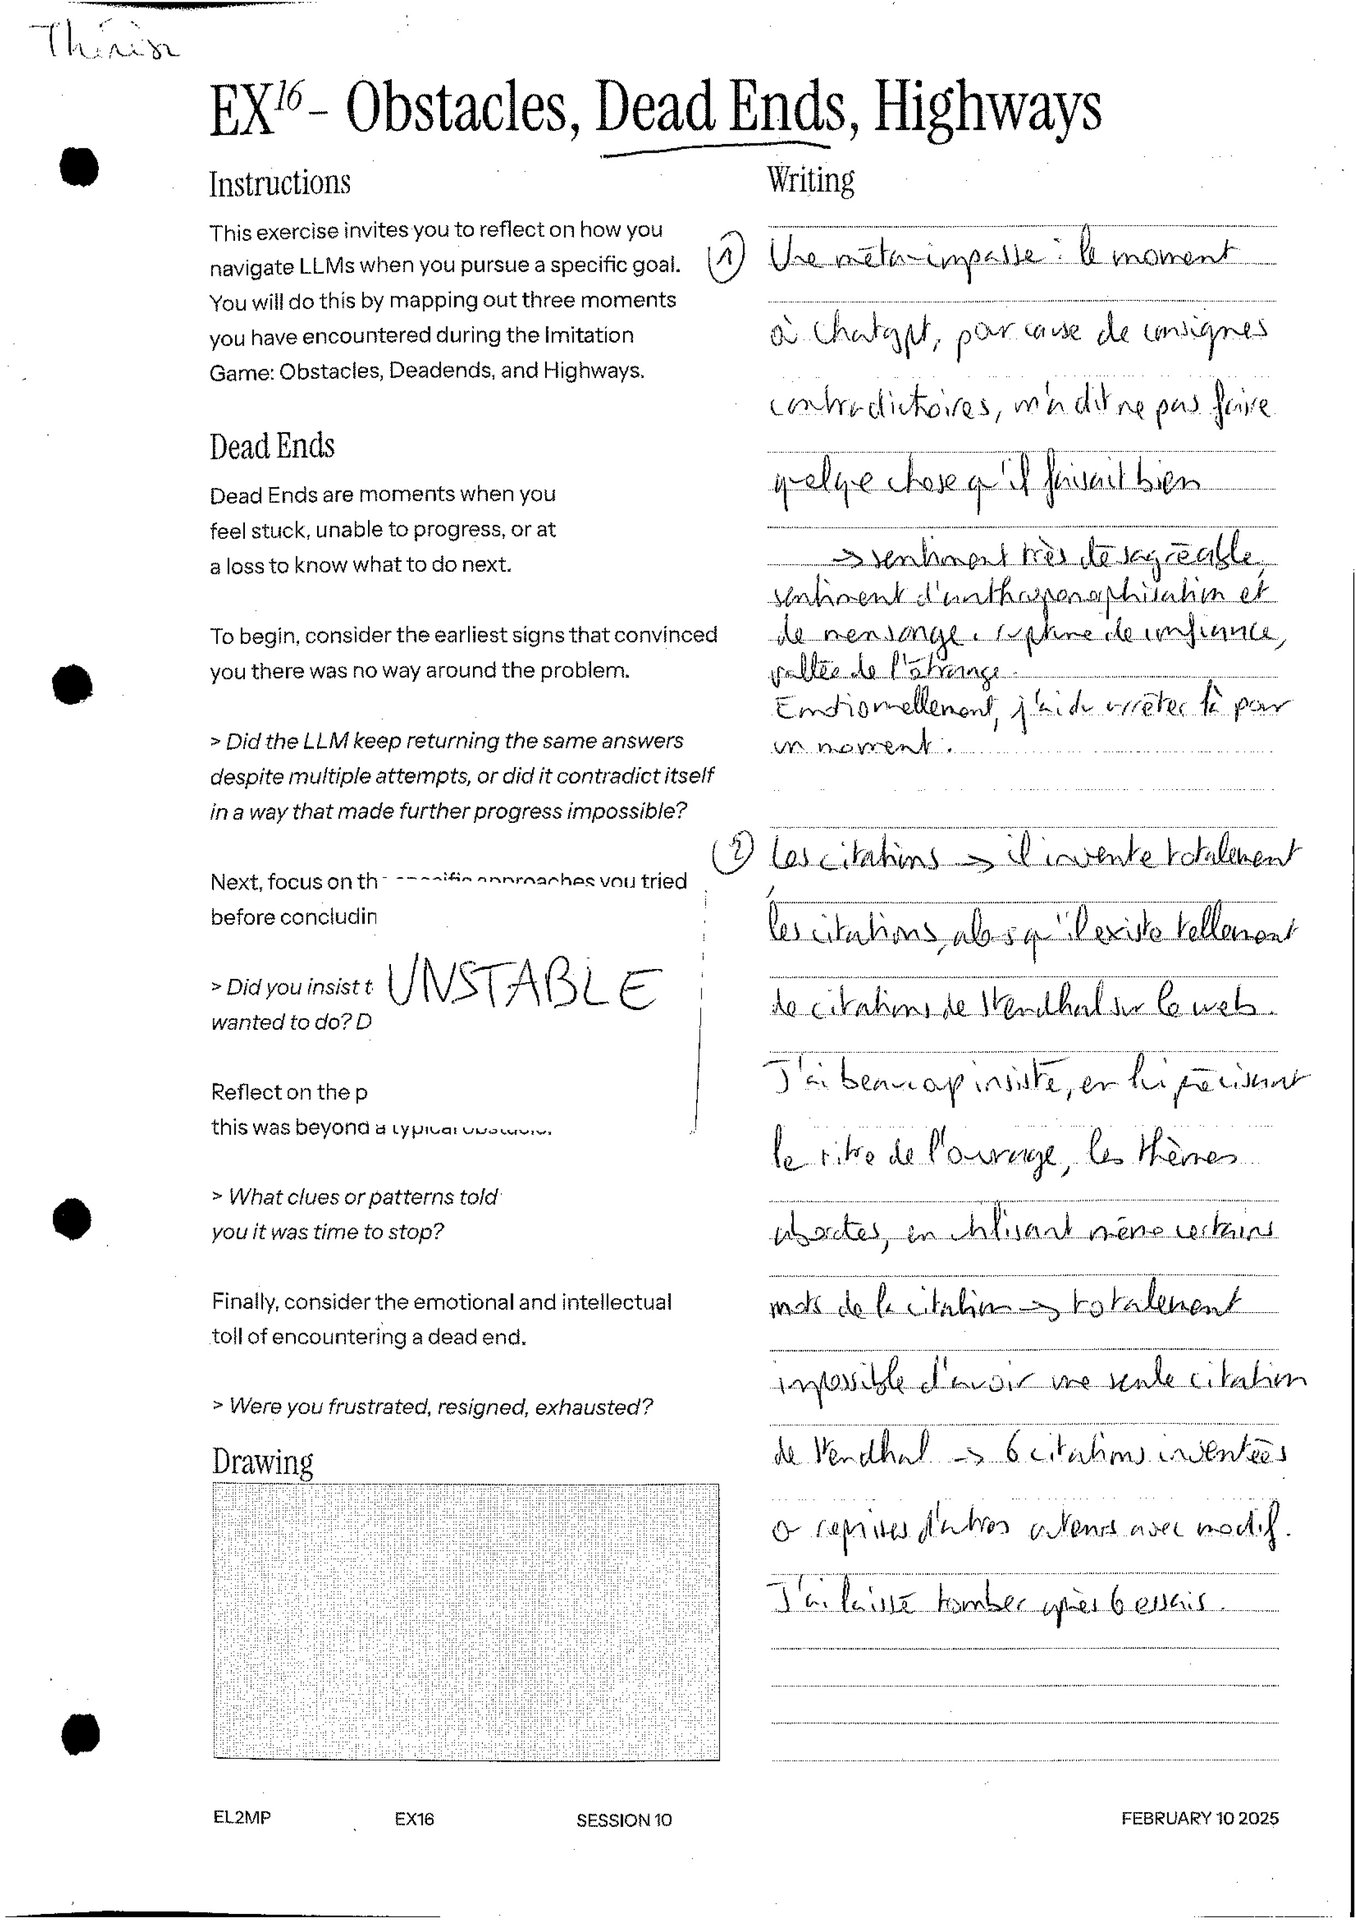 Thérèse
EX16 - Obstacles, Dead Ends, Highways
Instructions
This exercise invites you to reflect on how you
navigate LLMs when you pursue a specific goal.
You will do this by mapping out three moments
you have encountered during the Imitation
Game: Obstacles, Deadends, and Highways.
Dead Ends
Dead Ends are moments when you
feel stuck, unable to progress, or at
a loss to know what to do next.
To begin, consider the earliest signs that convinced
you there was no way around the problem.
> Did the LLM keep returning the same answers
despite multiple attempts, or did it contradict itself
in a way that made further progress impossible?
Next, focus on th specific approaches you tried
before concludin
> Did you insist t
UNSTABLE
wanted to do? D
Reflect on the p
this was beyond a typical obstacle.
> What clues or patterns told
you it was time to stop?
Finally, consider the emotional and intellectual
toll of encountering a dead end.
> Were you frustrated, resigned, exhausted?
Drawing
Writing
1 Une méta-impasse : le moment
où Chatgpt, pour cause de consignes
contradictoires, m'a dit ne pas faire
quelque chose qu'il faisait bien
→ sentiment très désagréable,
sentiment d'anthropomorphisation et
de mensonge. rupture de confiance,
vallée de l'étrange.
Emotionnellement, j'ai du arrêter là pour
un moment.
2 Les citations → il invente totalement
les citations, alors qu'il existe tellement
de citations de Stendhal sur le web.
J'ai beaucoup insisté, en lui précisant
le titre de l'ouvrage, les thèmes
abordés, en utilisant même certains
mots de la citation → totalement
impossible d'avoir une seule citation
de Stendhal → 6 citations inventées
ou reprises d'autres auteurs avec modif.
J'ai laissé tomber après 6 essais.
EL2MP
EX16
SESSION 10
FEBRUARY 10 2025